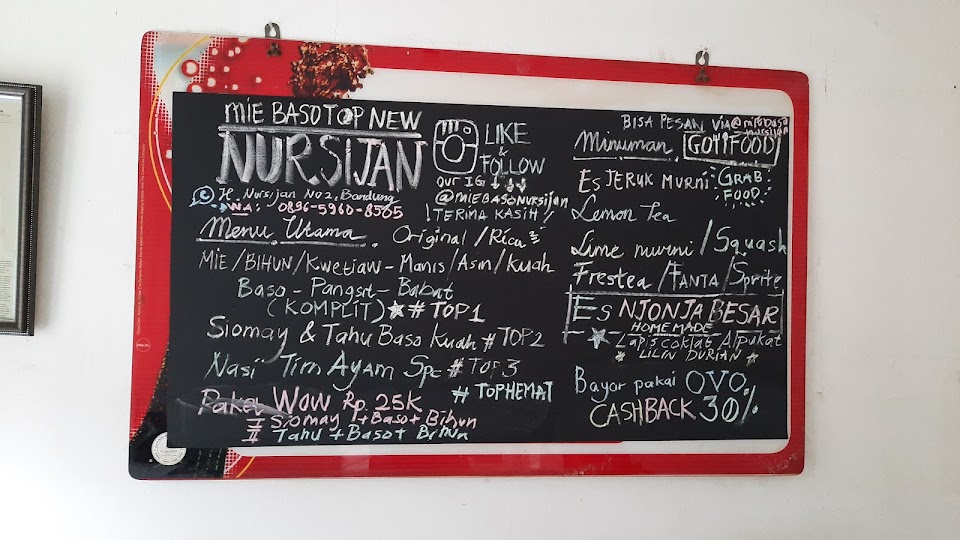 MIE BASO TOP NEW
NURSIJAN
Jl. Nursijan No 2, Bandung
WA: 0896-5960-8505
LIKE
&
FOLLOW
OUR IG ↓↓↓
@MIEBASONURSIJAN
! TERIMA KASIH !
Menu Utama
Original / Rica²
MIE/BIHUN/Kwetiaw - Manis/Asin/Kuah
Baso - Pangsit - Babat
(KOMPLIT) ★ # TOP 1
Siomay & Tahu Baso Kuah # TOP 2
Nasi Tim Ayam Spc # TOP 3
# TOPHEMAT
Paket WOW Rp. 25K
I Siomay 1 + Baso + Bihun
II Tahu + Baso + Bihun
BISA PESAN VIA @miebaso
nursijan
Minuman
GO FOOD
Es JERUK MURNI
GRAB
FOOD
Lemon Tea
Lime murni / Squash
Frestea / FANTA / Sprite
Es NJONJA BESAR
HOMEMADE
★ Lapis coklat Alpukat
* LILIN DURIAN *
Bayar pakai OVO
CASHBACK 30%